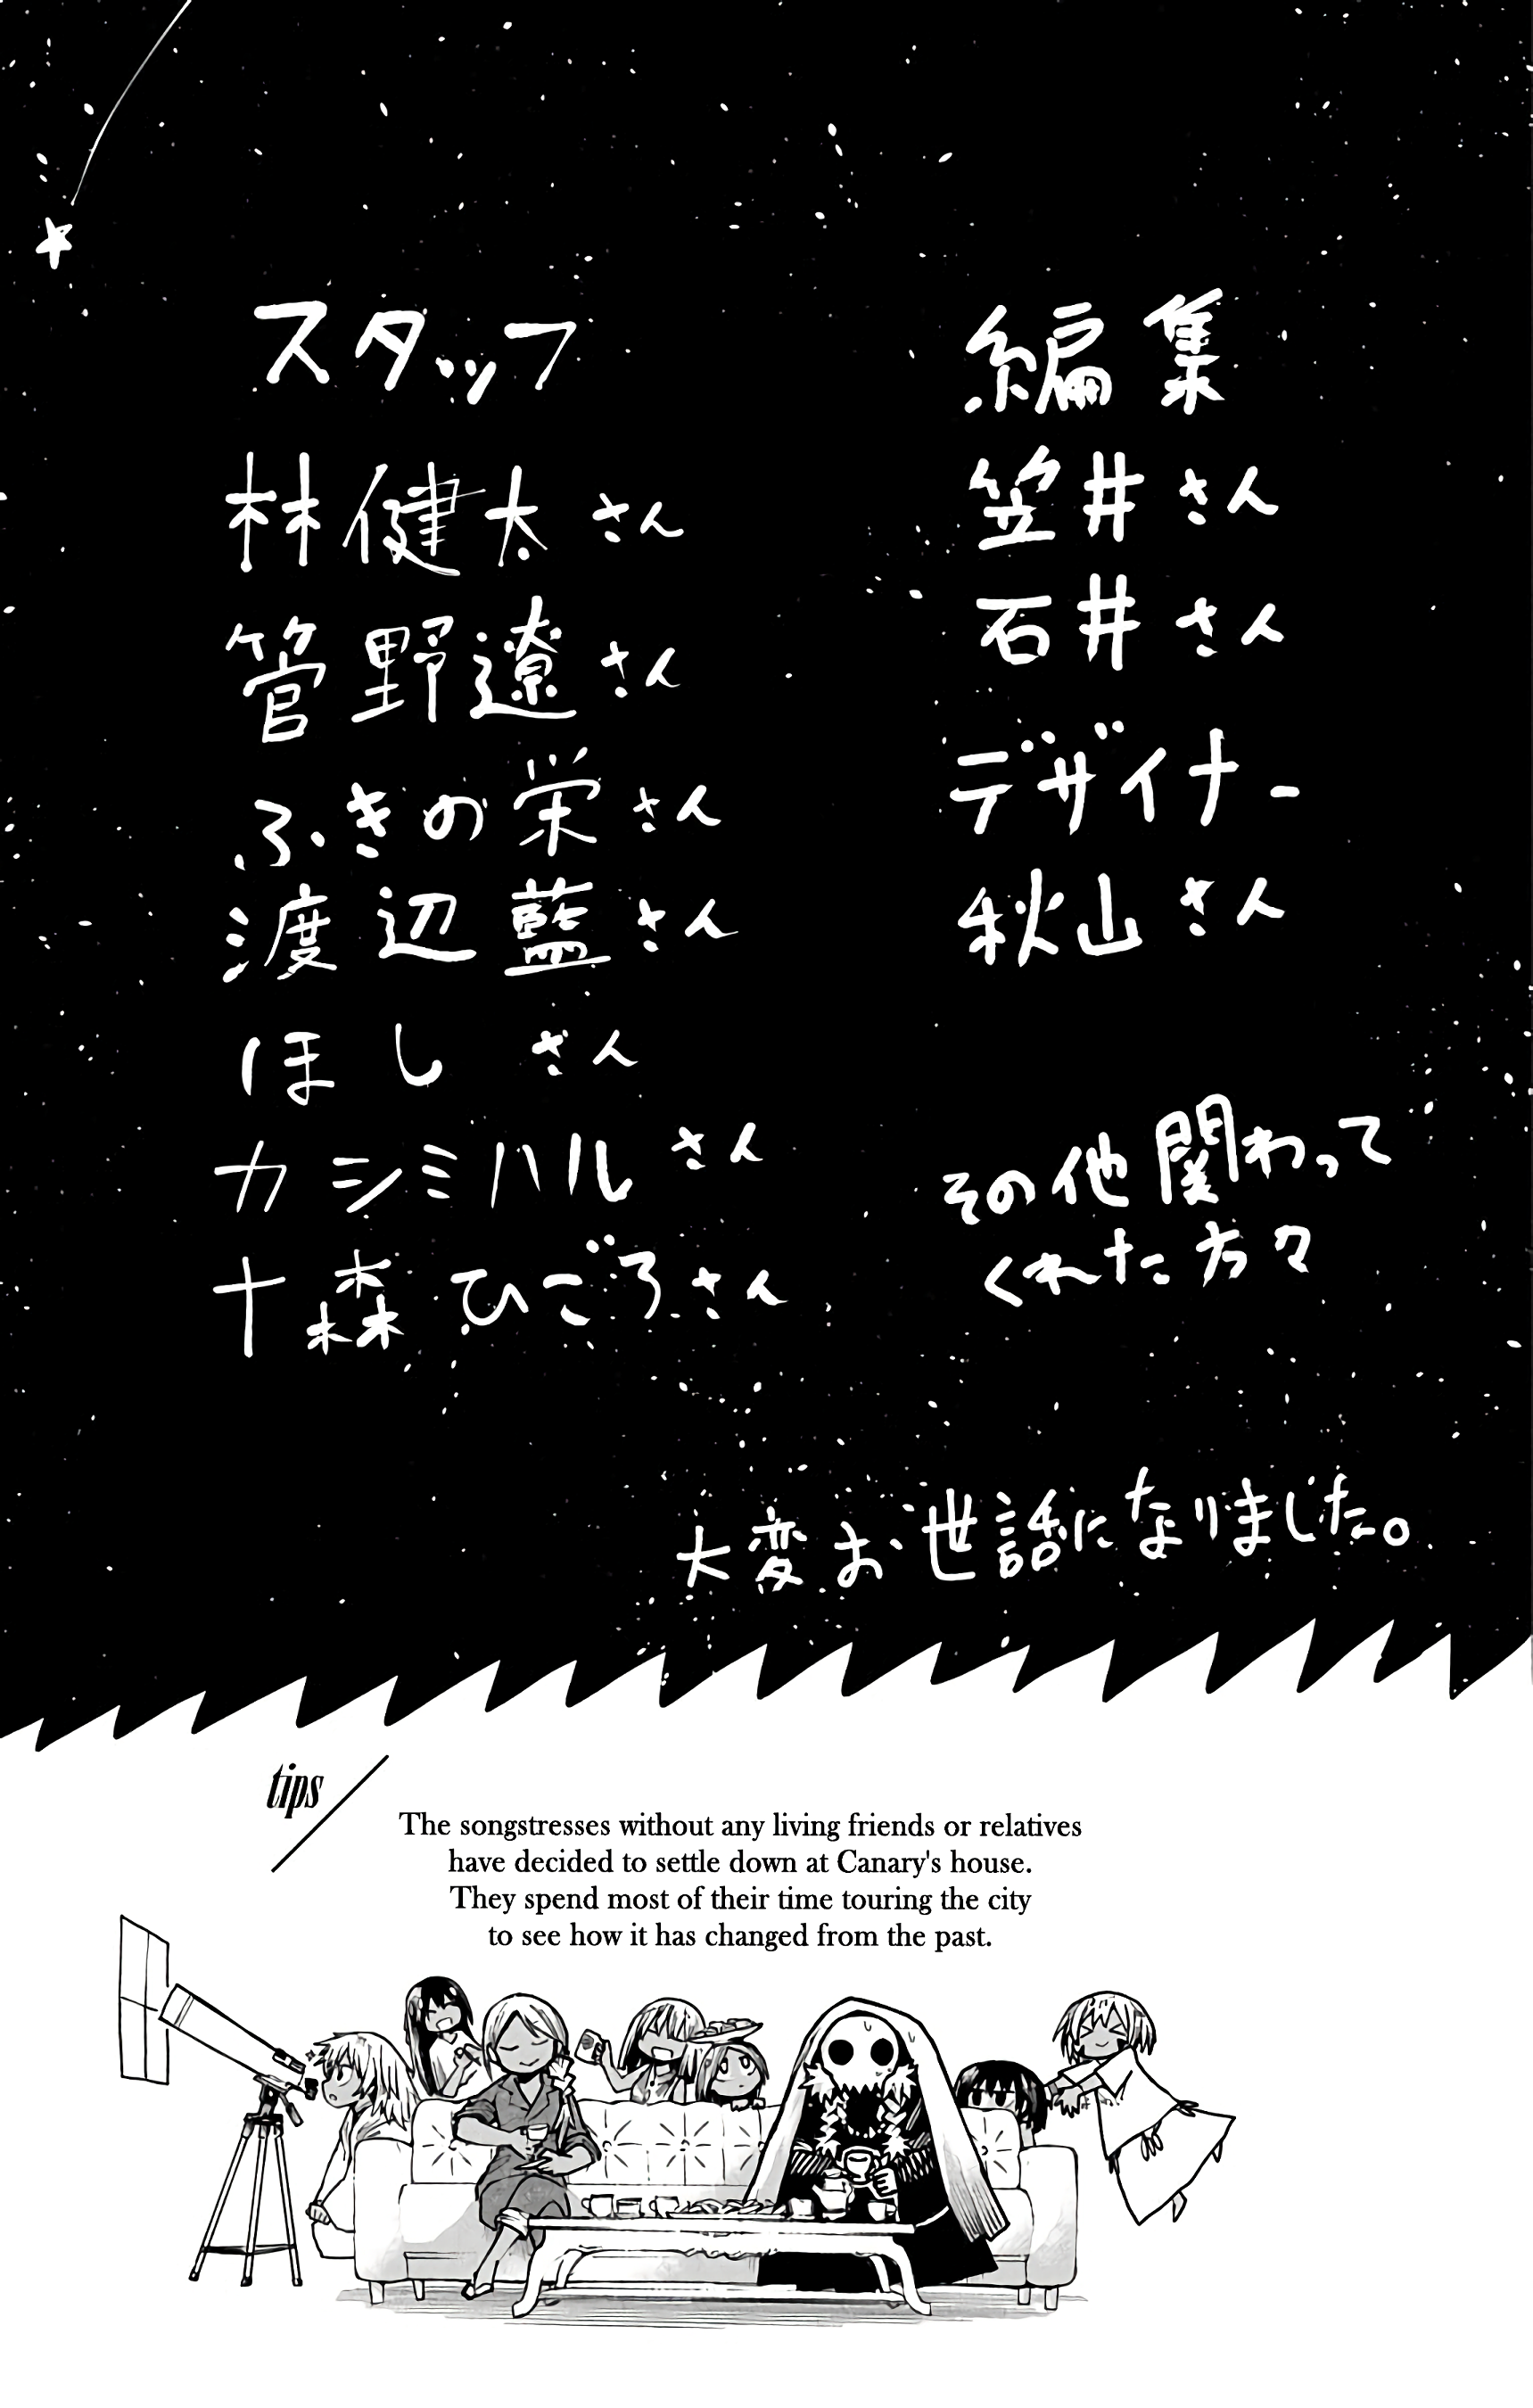 編集
笠井さん
石井さん
デザイナー
秋山さん
その他関わって
くれた方々
スタッフ
林健太さん
管野遼さん
ふきの栄さん
渡辺藍さん
ほしさん
カシミハルさん
十森ひごろさん
大変お世話になりました。
tips
The songstresses without any living friends or relatives
have decided to settle down at Canary's house.
They spend most of their time touring the city
to see how it has changed from the past.